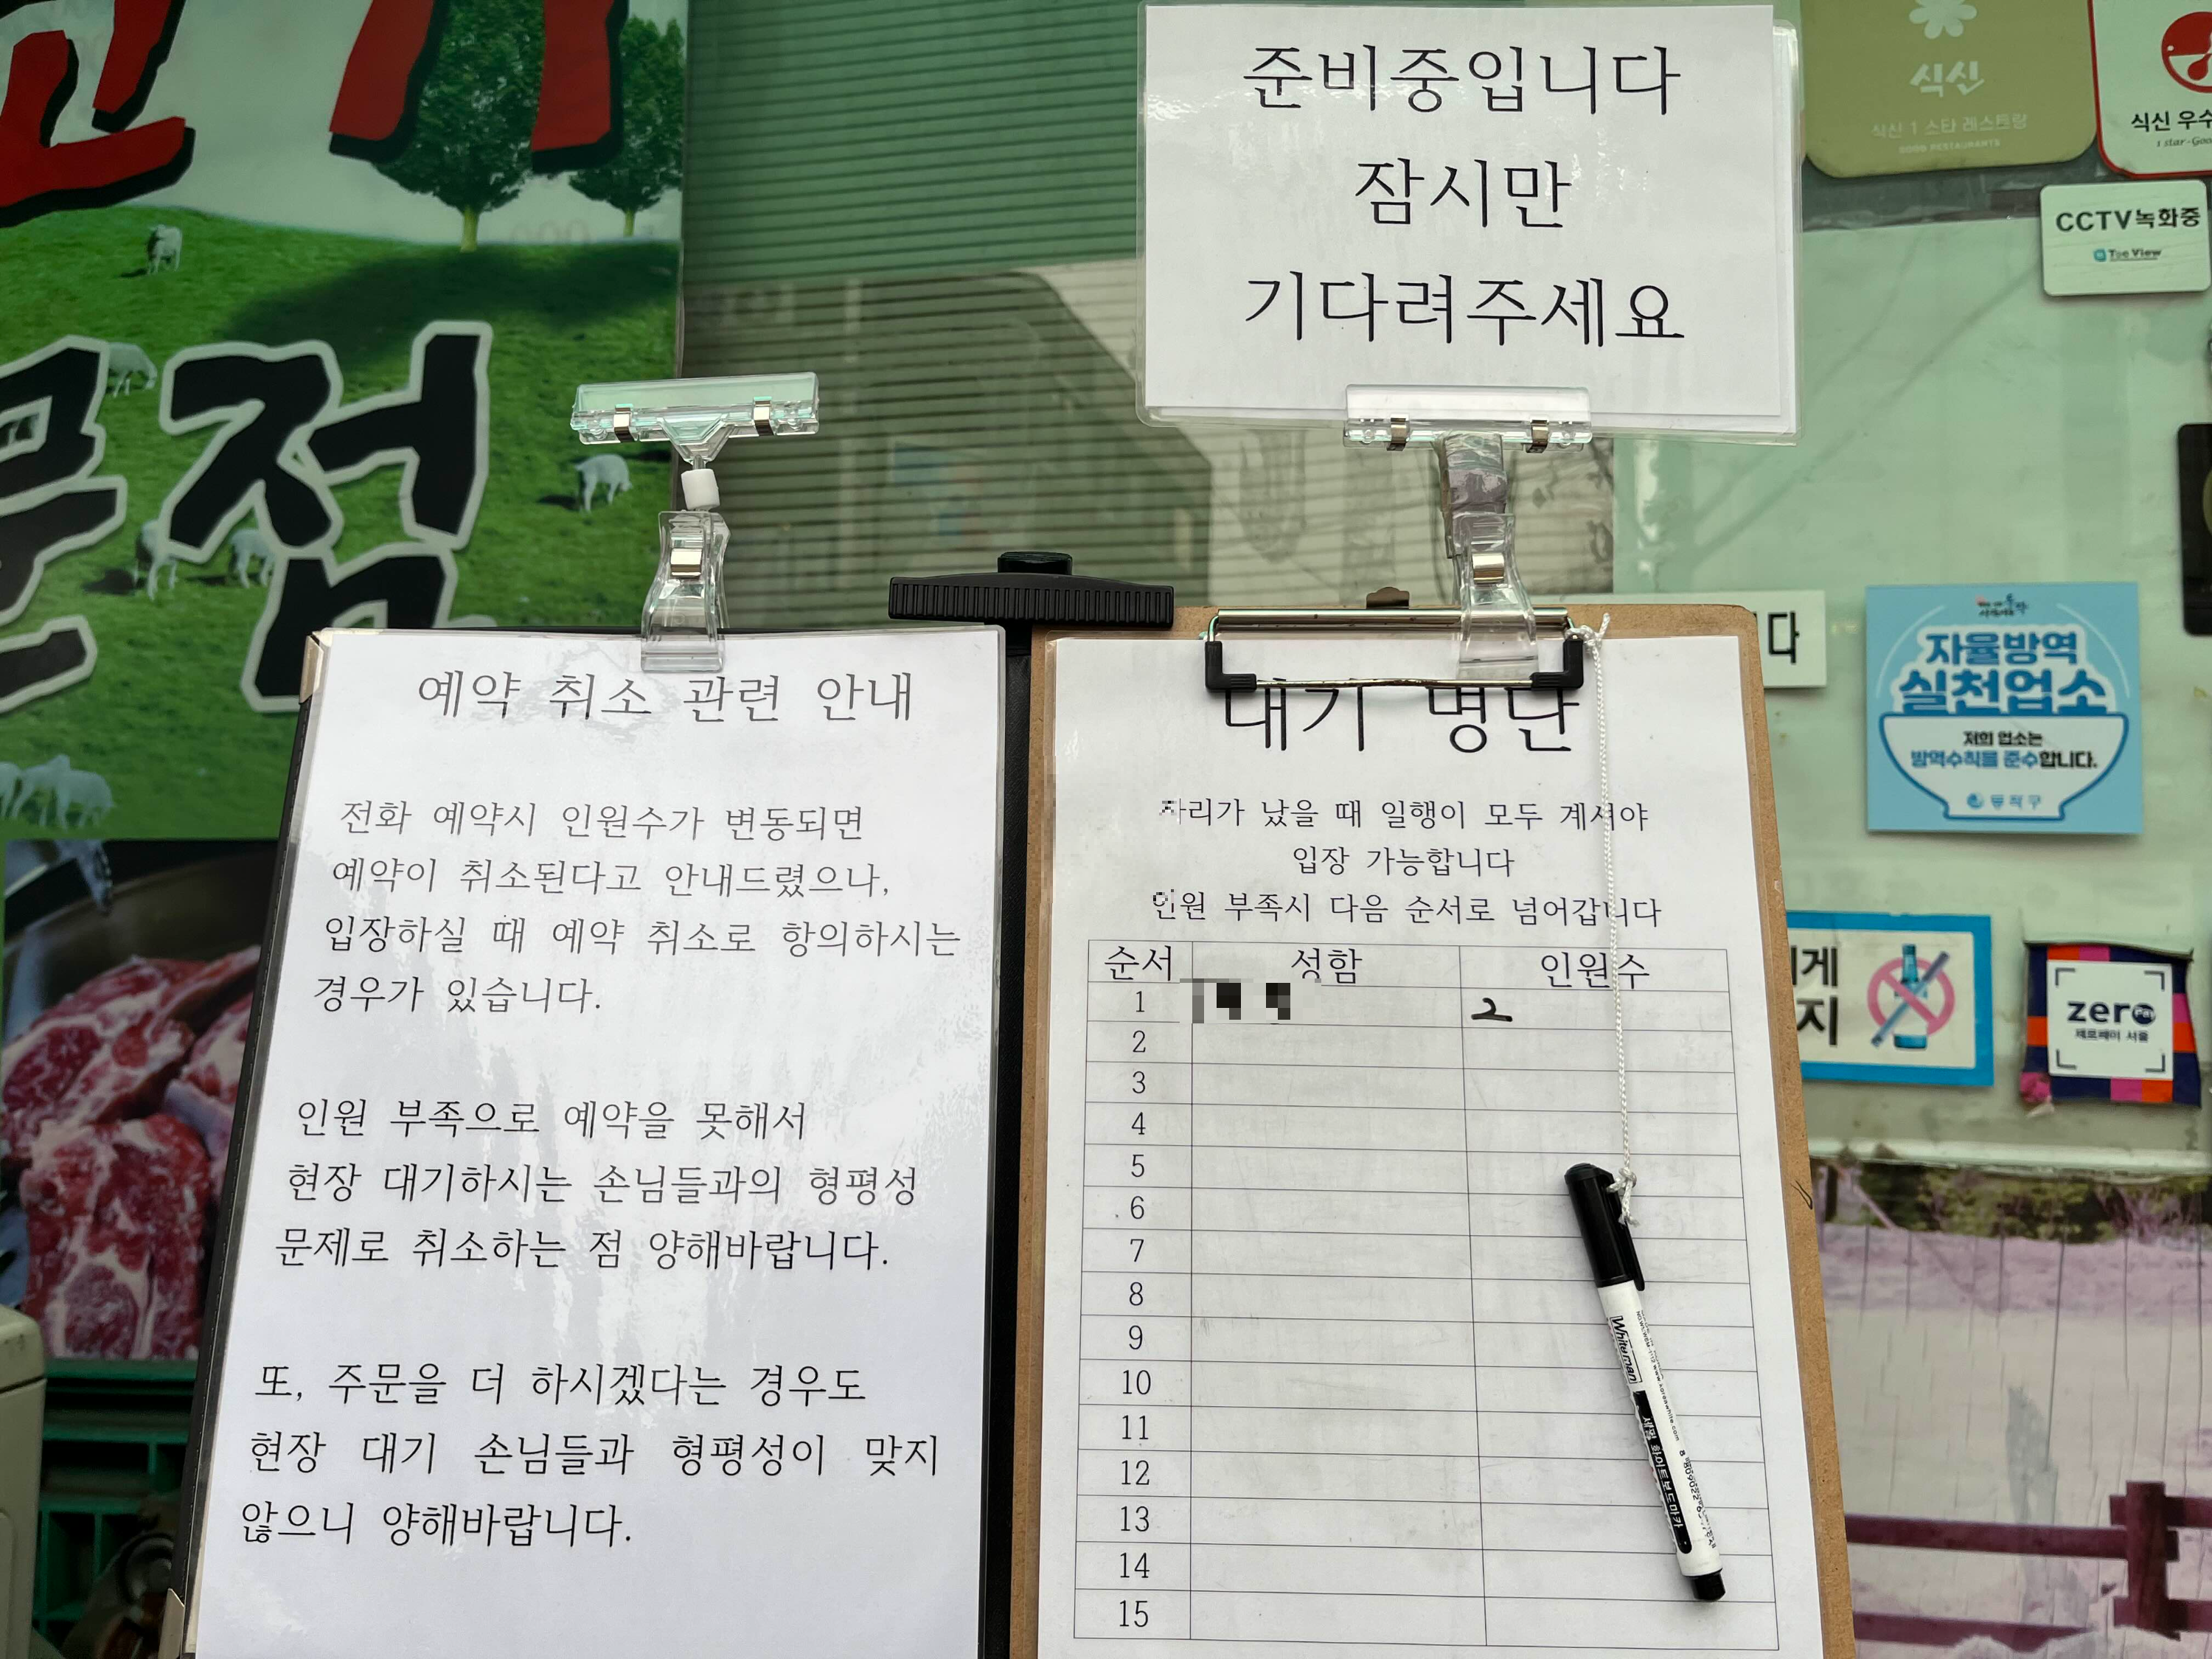 고기
문점
준비중입니다
잠시만
기다려주세요
식신
식신 1 스타 레스토랑
GOOD RESTAURANTS
식신 우수
1 star-Goo
CCTV녹화중
The View
예약 취소 관련 안내
전화 예약시 인원수가 변동되면
예약이 취소된다고 안내드렸으나,
입장하실 때 예약 취소로 항의하시는
경우가 있습니다.
인원 부족으로 예약을 못해서
현장 대기하시는 손님들과의 형평성
문제로 취소하는 점 양해바랍니다.
또, 주문을 더 하시겠다는 경우도
현장 대기 손님들과 형평성이 맞지
않으니 양해바랍니다.
대기 명단
자리가 났을 때 일행이 모두 계셔야
입장 가능합니다
인원 부족시 다음 순서로 넘어갑니다
순서 성함 인원수
1 2
2
3
4
5
6
7
8
9
10
11
12
13
14
15
Whiteman
세필 화이트보드마카
다
자율방역
실천업소
저희 업소는
방역수칙을 준수합니다.
동작구
게
지
zero pay
제로페이 서울